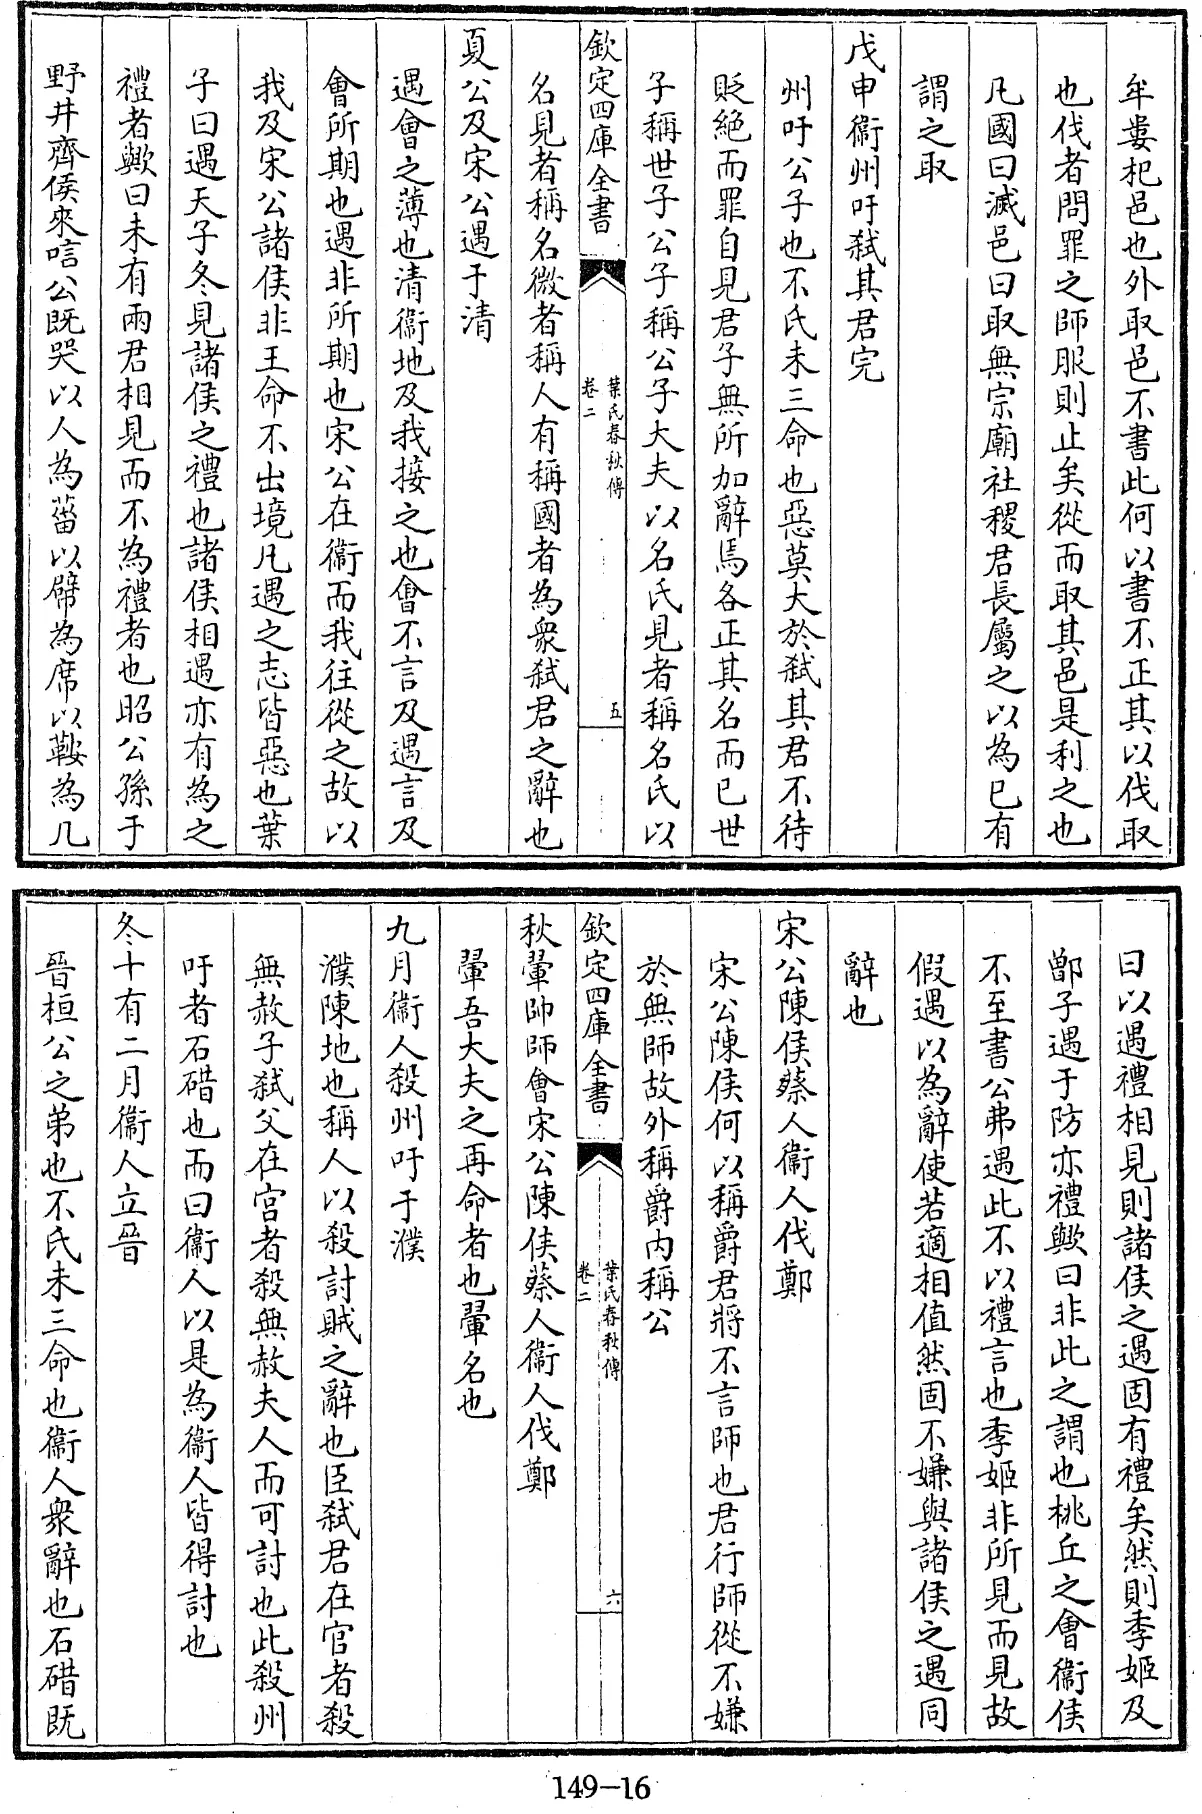 牟婁杞邑也外取邑不書此何以書不正其以伐取
也伐者問罪之師服則止矣從而取其邑是利之也
凡國曰滅邑曰取無宗廟社稷君長屬之以為已有
謂之取
戊申衞州吁弑其君完
州吁公子也不氏未三命也惡莫大於弑其君不待
貶絶而罪自見君子無所加辭焉各正其名而已世
子稱世子公子稱公子大夫以名氏見者稱名氏以
欽定四庫全書
葉氏春秋傳
卷二
五
名見者稱名微者稱人有稱國者為衆弑君之辭也
夏公及宋公遇于清
遇會之薄也清衞地及我接之也會不言及遇言及
會所期也遇非所期也宋公在衞而我往從之故以
我及宋公諸侯非王命不出境凡遇之志皆惡也葉
子曰遇天子冬見諸侯之禮也諸侯相遇亦有為之
禮者歟曰未有兩君相見而不為禮者也昭公孫于
野井齊侯來唁公既哭以人為菑以幦為席以鞍為几
曰以遇禮相見則諸侯之遇固有禮矣然則季姬及
鄫子遇于防亦禮歟曰非此之謂也桃丘之會衞侯
不至書公弗遇此不以禮言也季姬非所見而見故
假遇以為辭使若適相值然固不嫌與諸侯之遇同
辭也
宋公陳侯蔡人衞人伐鄭
宋公陳侯何以稱爵君將不言師也君行師從不嫌
於無師故外稱爵内稱公
欽定四庫全書
葉氏春秋傳
卷二
六
秋翬帥師會宋公陳侯蔡人衞人伐鄭
翬吾大夫之再命者也翬名也
九月衞人殺州吁于濮
濮陳地也稱人以殺討賊之辭也臣弑君在官者殺
無赦子弑父在宫者殺無赦夫人而可討也此殺州
吁者石碏也而曰衞人以是為衞人皆得討也
冬十有二月衞人立晉
晉桓公之弟也不氏未三命也衞人衆辭也石碏既
149-16